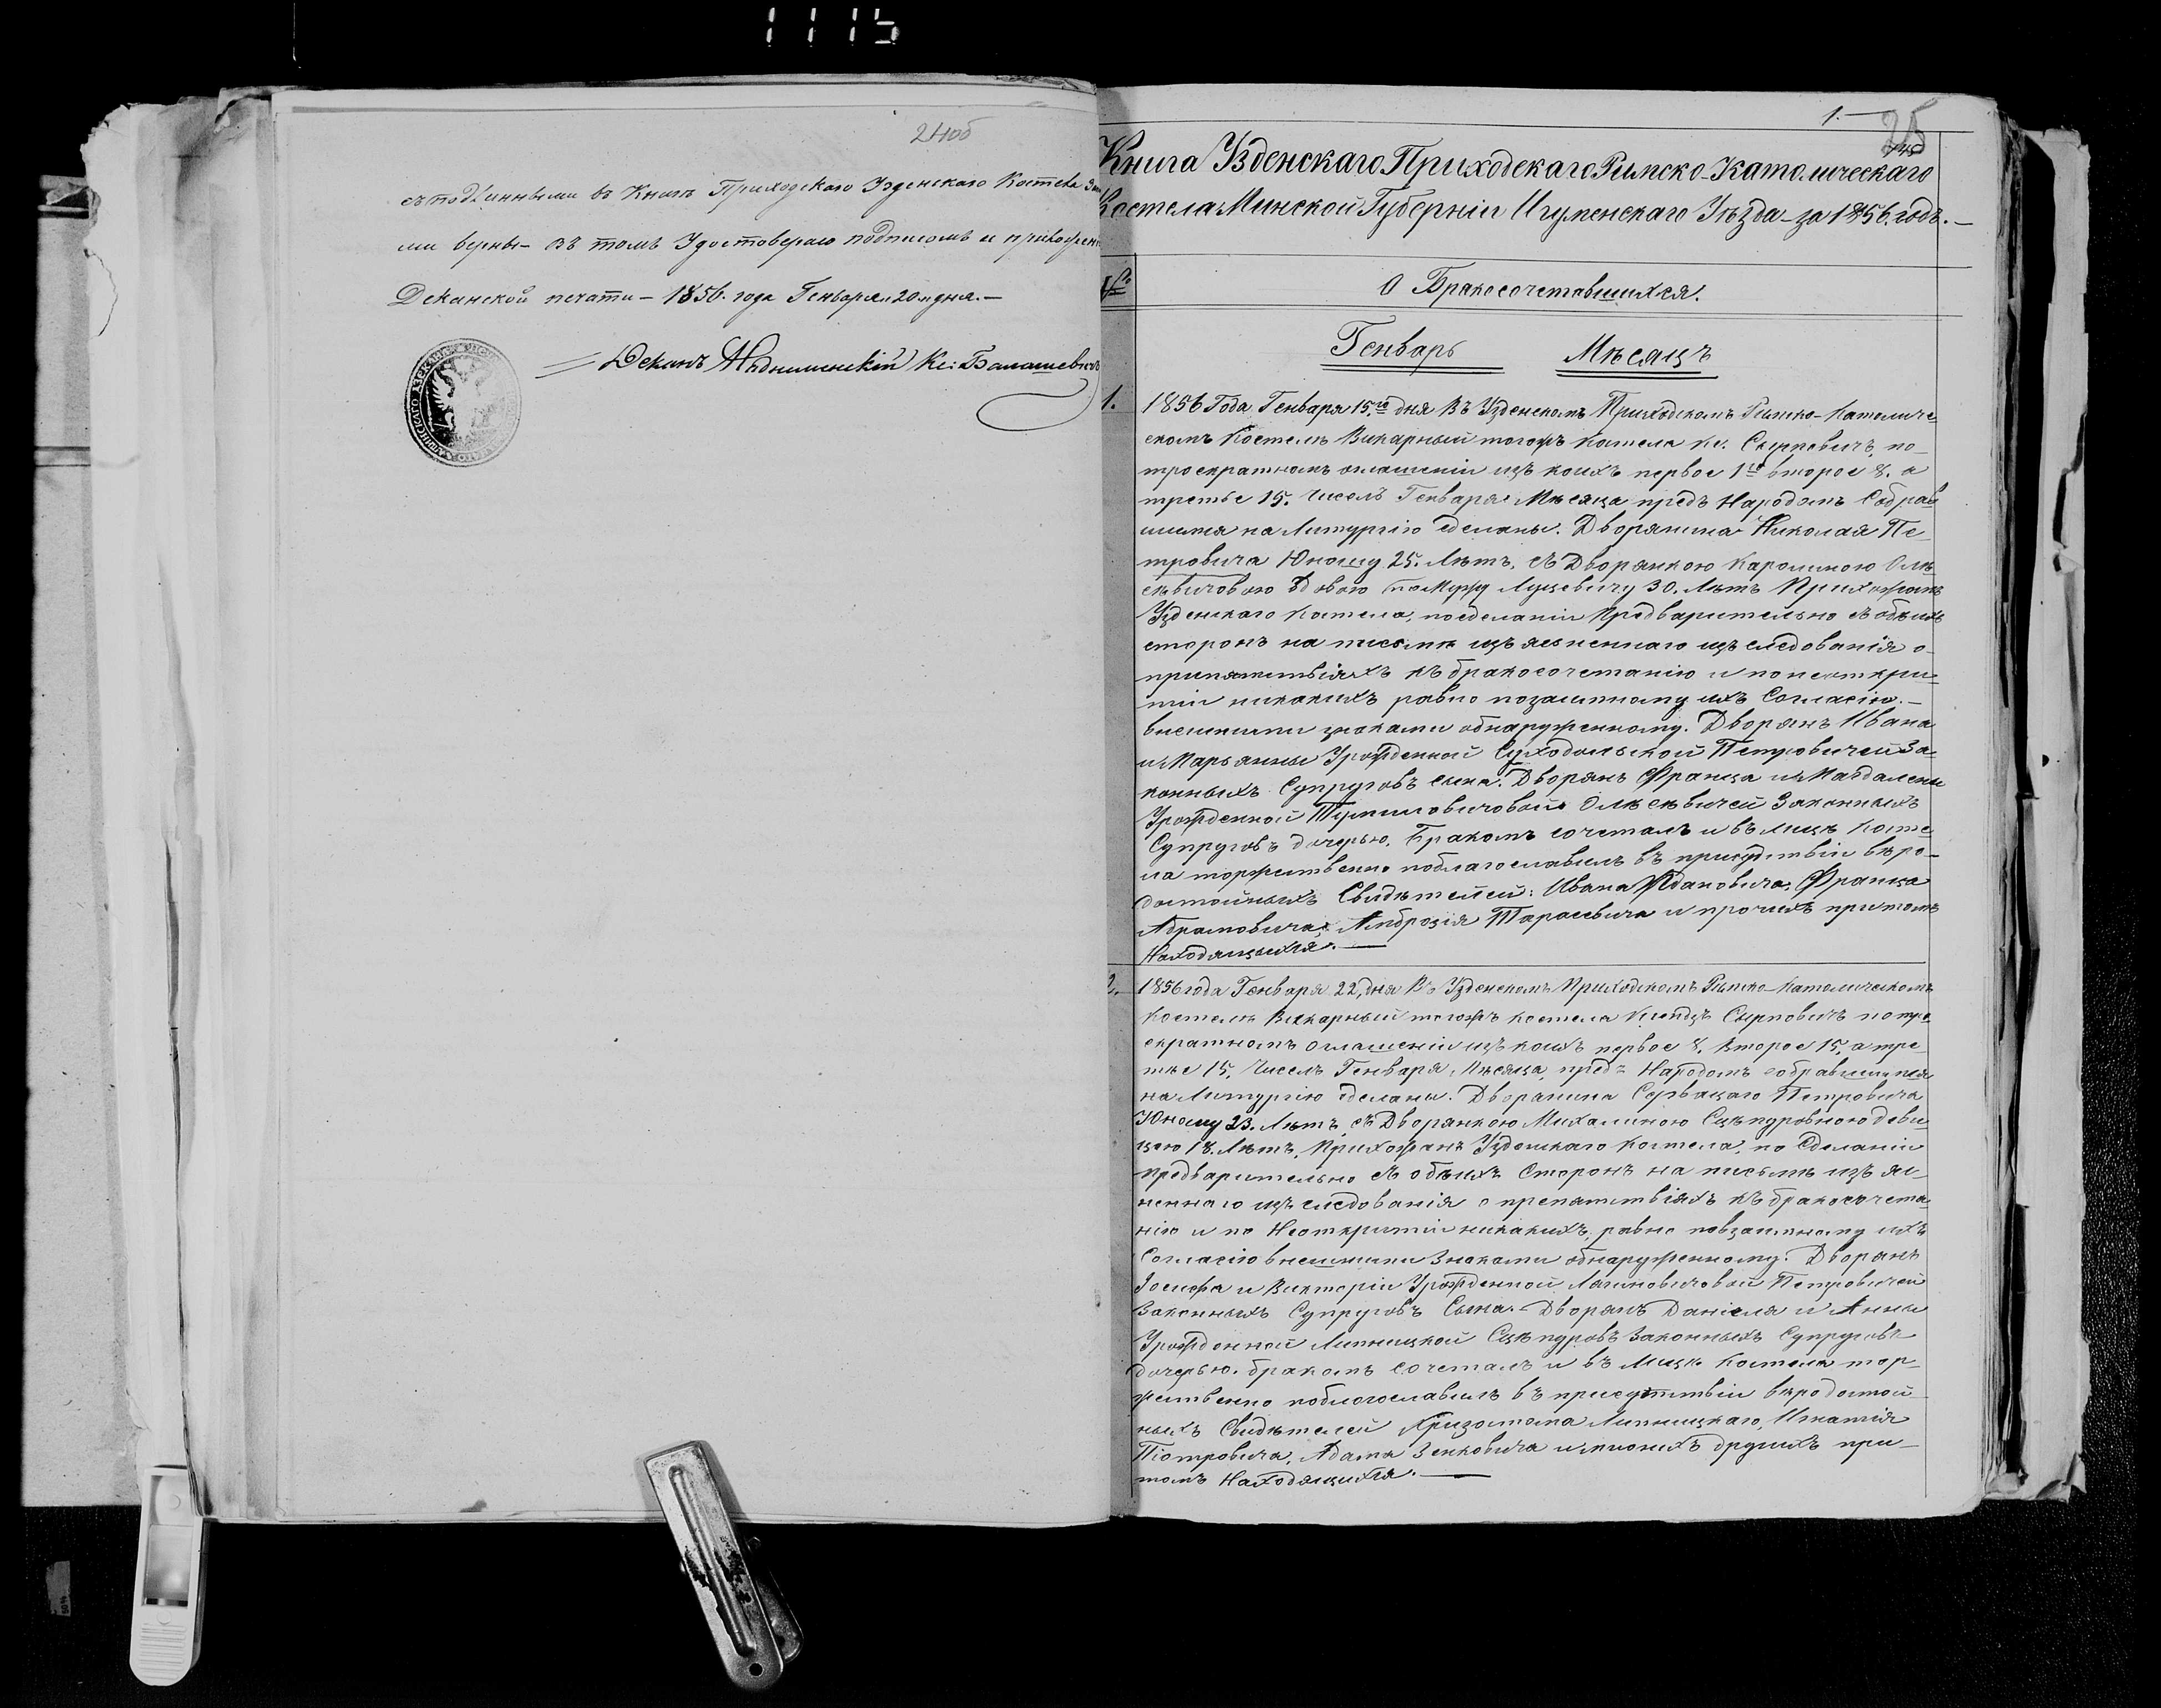 1115
24об
съ подлинными въ Книгѣ Приходскаго Узденскаго Костела
ми вѣрны – въ томъ Удостоверяю подписомъ и приложен
Деканской печати – 1856. года Генваря „20„ дня. –
Деканъ Кс: Балашевичъ
1. –
25
Книга Узденскаго Приходскаго Римско-Католическаго
Костела Минской Губерніи Игуменскаго Уѣзда за 1856. годъ. –
№
О Бракосочетавшихся.
Генварь Мѣсяцъ
1.
1856 Года Генваря 15.го дня Въ Узденскомъ Приходскомъ Римско-Католиче-
скомъ Костелѣ Викарный тогожъ костела Кс. Сырповичъ, по-
троекратномъ оглашеніи изъ коихъ первое 1го второе 8. а
третье 15. Числъ Генваря Мѣсяца предъ Народомъ Собрав-
шимся на Литургію сделаны. Дворянина Николая Пе-
тровича Юношу 25. Лѣтъ, съ Дворянкою Каролиною Олѣ-
сѣвичовою Вдовою по Мужу Луцевичу 30. Лѣтъ Прихожанъ
Узденскаго Костела, по сделаніи Предварительно съ обѣихъ
сторонъ на письмѣ изъясненнаго изъследованія о-
припятствіяхъ къ бракосочетанію и по неоткри-
тіи никакихъ равно повзаимному ихъ Согласію. –
внешними знаками обнаруженному. Дворянъ Ивана
и Марьянны Урожденной Суходольской Петровичей За-
конныхъ Супруговъ сына. Дворянъ Франца и Магдалены
Урожденной Олѣсѣвичей Законныхъ
Супруговъ дочерью. Бракомъ сочеталъ и въ лицѣ Косте-
ла торжественно поблагославилъ въ присудствіи вѣро-
достойныхъ Свидѣтелей: Ивана Ждановича, Франца
Абрамовича, Амброзія Тарасевича и прочихъ притомъ
Находящихся. –
2.
1856 года Генваря 22, дня Въ Узденскомъ Приходскомъ Римско-Католическомъ
Костелѣ Викарный тогожъ костела Ксендзъ Сырповичъ по тро-
екратномъ оглашеніи изъ коихъ первое 8. второе 15, а тре-
тье 15. Числъ Генваря Мѣсяца, предъ Народомъ собравшимся
на Литургію сделаны. Дворянина Сервацаго Петровича
Юношу 23. Лѣтъ, съ Дворянкою Михалиною Сцѣпуровною деви-
цею 18. Лѣтъ, Прихожанъ Узденскаго Костела, по Сделаніи
предварительно съ обѣихъ Сторонъ на письмѣ изъяс-
неннаго изъследованія о препятствіяхъ къ бракосочета-
нію и по Неоткритіи никакихъ, равно повзаимному ихъ
Согласію внешними Знаками обнаруженному. Дворянъ
Іосифа и Викторіи Урожденной Петровичей
Законныхъ Супруговъ Сына. – Дворянъ Даніеля и Анны
Урожденной Липницкой Сцѣпуровъ Законныхъ Супруговъ
дочерью. бракомъ сочеталъ и въ Лицѣ Костела тор-
жественно поблогославилъ въ присутствіи вѣродостой-
ныхъ Свидѣтелей Хризостома Липницкаго, Игнатія
Піотровича, Адама Зенковича и многихъ другихъ при-
томъ Находящихся. –